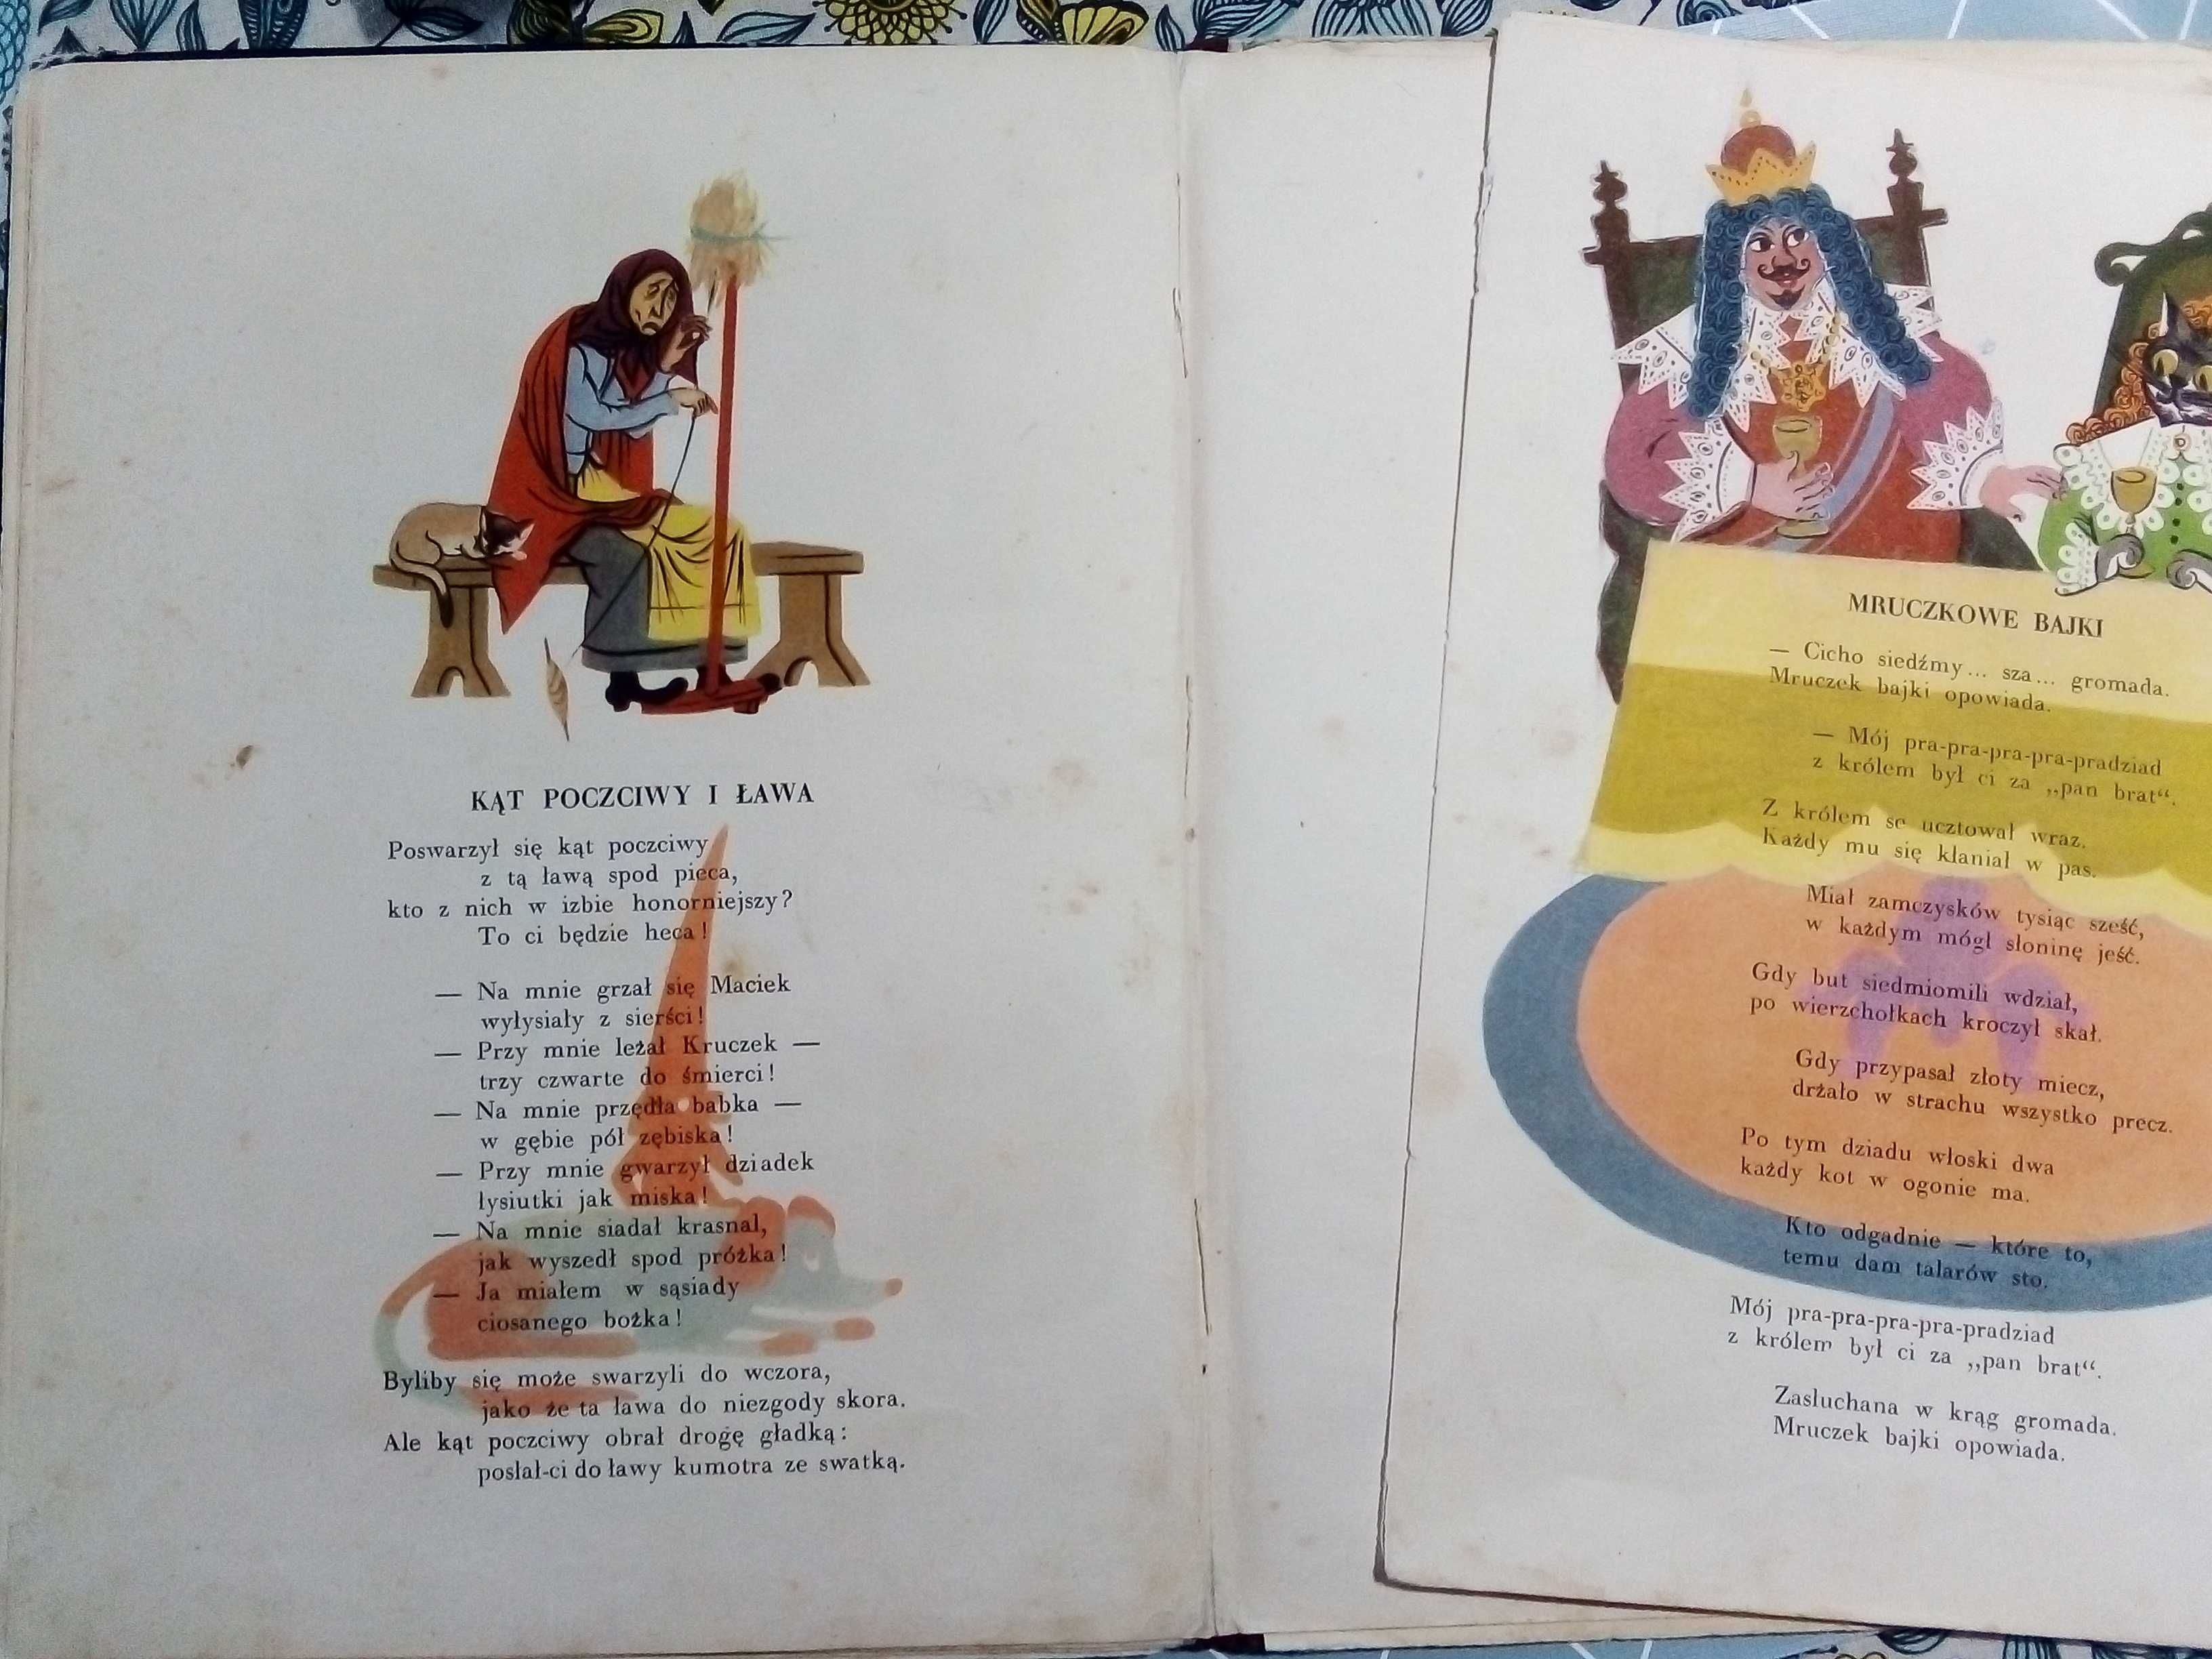 KĄT POCZCIWY I ŁAWA
Poswarzył się kąt poczciwy
z tą ławą spod pieca,
kto z nich w izbie honorniejszy?
To ci będzie heca!
— Na mnie grzał się Maciek
wyłysiały z sierści!
— Przy mnie leżał Kruczek —
trzy czwarte do śmierci!
— Na mnie przędła babka —
w gębie pół zębiska!
— Przy mnie gwarzył dziadek
łysiutki jak miska!
— Na mnie siadał krasnal,
jak wyszedł spod próżka!
— Ja miałem w sąsiady
ciosanego bożka!
Byliby się może swarzyli do wczora,
jako że ta ława do niezgody skora.
Ale kąt poczciwy obrał drogę gładką:
posłał-ci do ławy kumotra ze swatką.
MRUCZKOWE BAJKI
— Cicho siedźmy... sza... gromada.
Mruczek bajki opowiada.
— Mój pra-pra-pra-pra-pradziad
z królem był ci za „pan brat“.
Z królem se ucztował wraz.
Każdy mu się kłaniał w pas.
Miał zamczysków tysiąc sześć,
w każdym mógł słoninę jeść.
Gdy but siedmiomili wdział,
po wierzchołkach kroczył skał.
Gdy przypasał złoty miecz,
drżało w strachu wszystko precz.
Po tym dziadu włoski dwa
każdy kot w ogonie ma.
Kto odgadnie — które to,
temu dam talarów sto.
Mój pra-pra-pra-pra-pradziad
z królem był ci za „pan brat“.
Zasłuchana w krąg gromada.
Mruczek bajki opowiada.